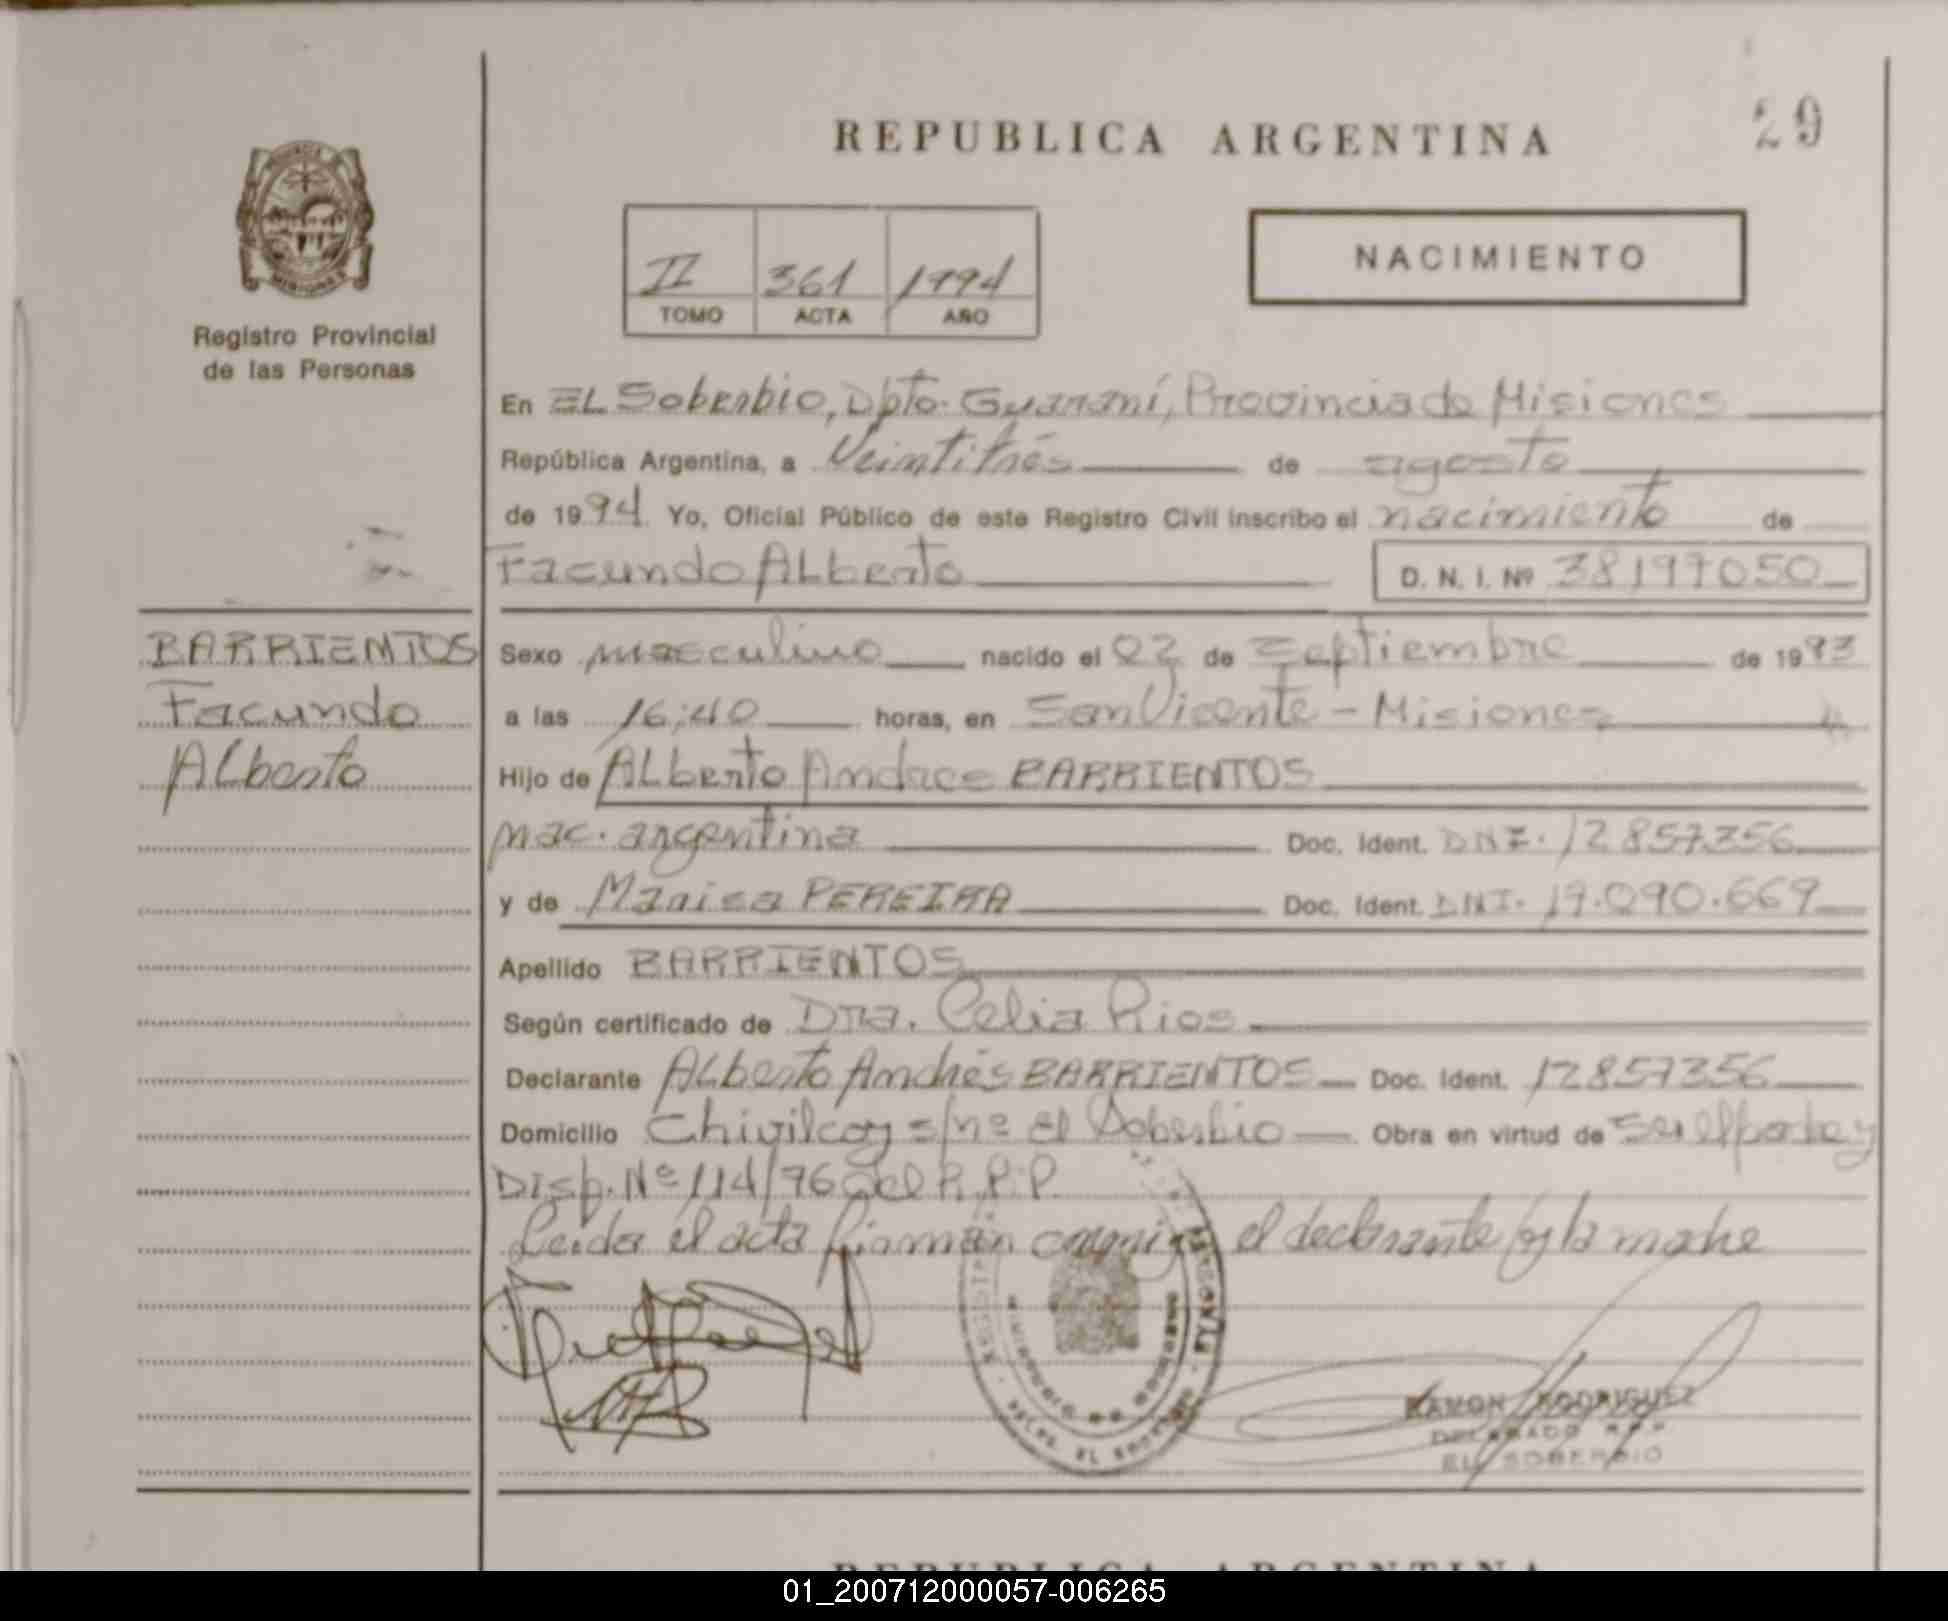 REPUBLICA ARGENTINA
29
II 361 1994
TOMO ACTA AÑO
NACIMIENTO
Registro Provincial
de las Personas
En EL Soberbio, Dpto. Guaraní, Provincia de Misiones
República Argentina, a Veintitrés de agosto
de 1994 Yo, Oficial Público de este Registro Civil inscribo el nacimiento de
Facundo Alberto D. N. I. Nº 38197050
BARRIENTOS
Facundo
Alberto
Sexo masculino nacido el 02 de Septiembre de 1993
a las 16:40 horas, en San Vicente - Misiones
Hijo de Alberto Andres BARRIENTOS
nac. argentina Doc. Ident. DNI. 12857356
y de Marisa PEREIRA Doc. Ident. DNI. 19.090.669
Apellido BARRIENTOS
Según certificado de Dra. Celia Rios
Declarante Alberto Andrés BARRIENTOS Doc. Ident. 12857356
Domicilio Chivilcoy s/nº El Soberbio Obra en virtud de
Disp. Nº 114/76 del R.P.P.
Leida el acta firman conmigo el declarante y la madre
RAMON RODRIGUEZ
DELEGADO R.P.P.
EL SOBERBIO
REPUBLICA ARGENTINA
01_200712000057-006265